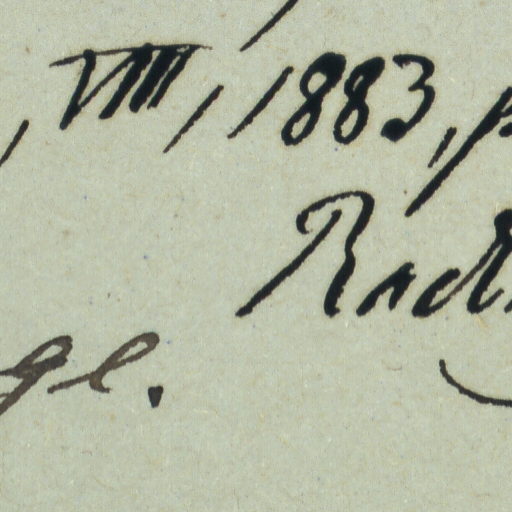 , VIII, 1883, p
Radl
gl.